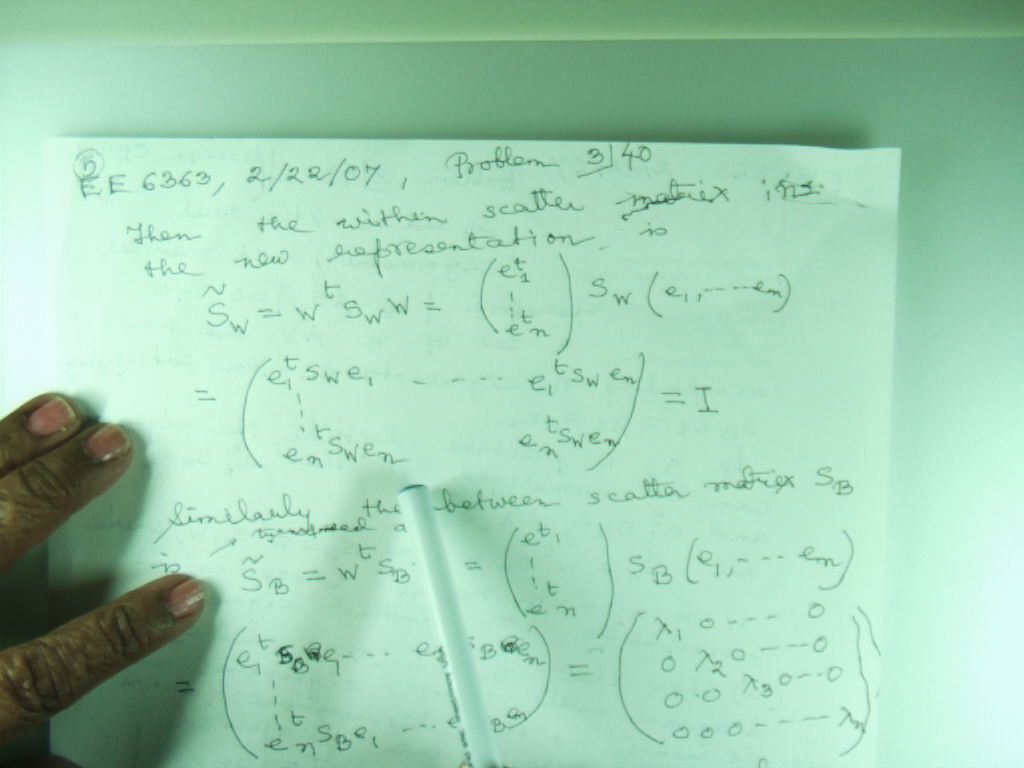 5
EE 6363, 2/22/07, Problem 3/40
Then the within scatter matrix in
the new representation is
S̃_W = W^t S_W W = (e_1^t ⋮ e_n^t) S_W (e_1, ---- e_n)
= (e_1^t S_W e_1 ---- e_1^t S_W e_n ⋮ e_n^t S_W e_n e_n^t S_W e_n) = I
Similarly the between scatter matrix S_B
is
S̃_B = W^t S_B = (e^t_1 ⋮ e^t_n) S_B (e_1, ---- e_n)
= (e_1^t S_B e_1 ---- S_B e_n ⋮ e_n^t S_B e_1 ---- B e_n) = (λ_1 0 ---- 0 0 λ_2 0 ---- 0 0 0 λ_3 0 --- 0 0 0 0 ---- λ_n)